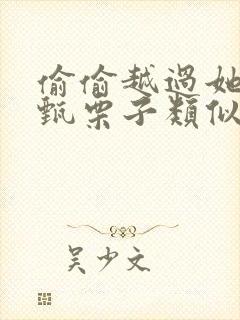 偷偷越過她
甄栗子類似
吴少文